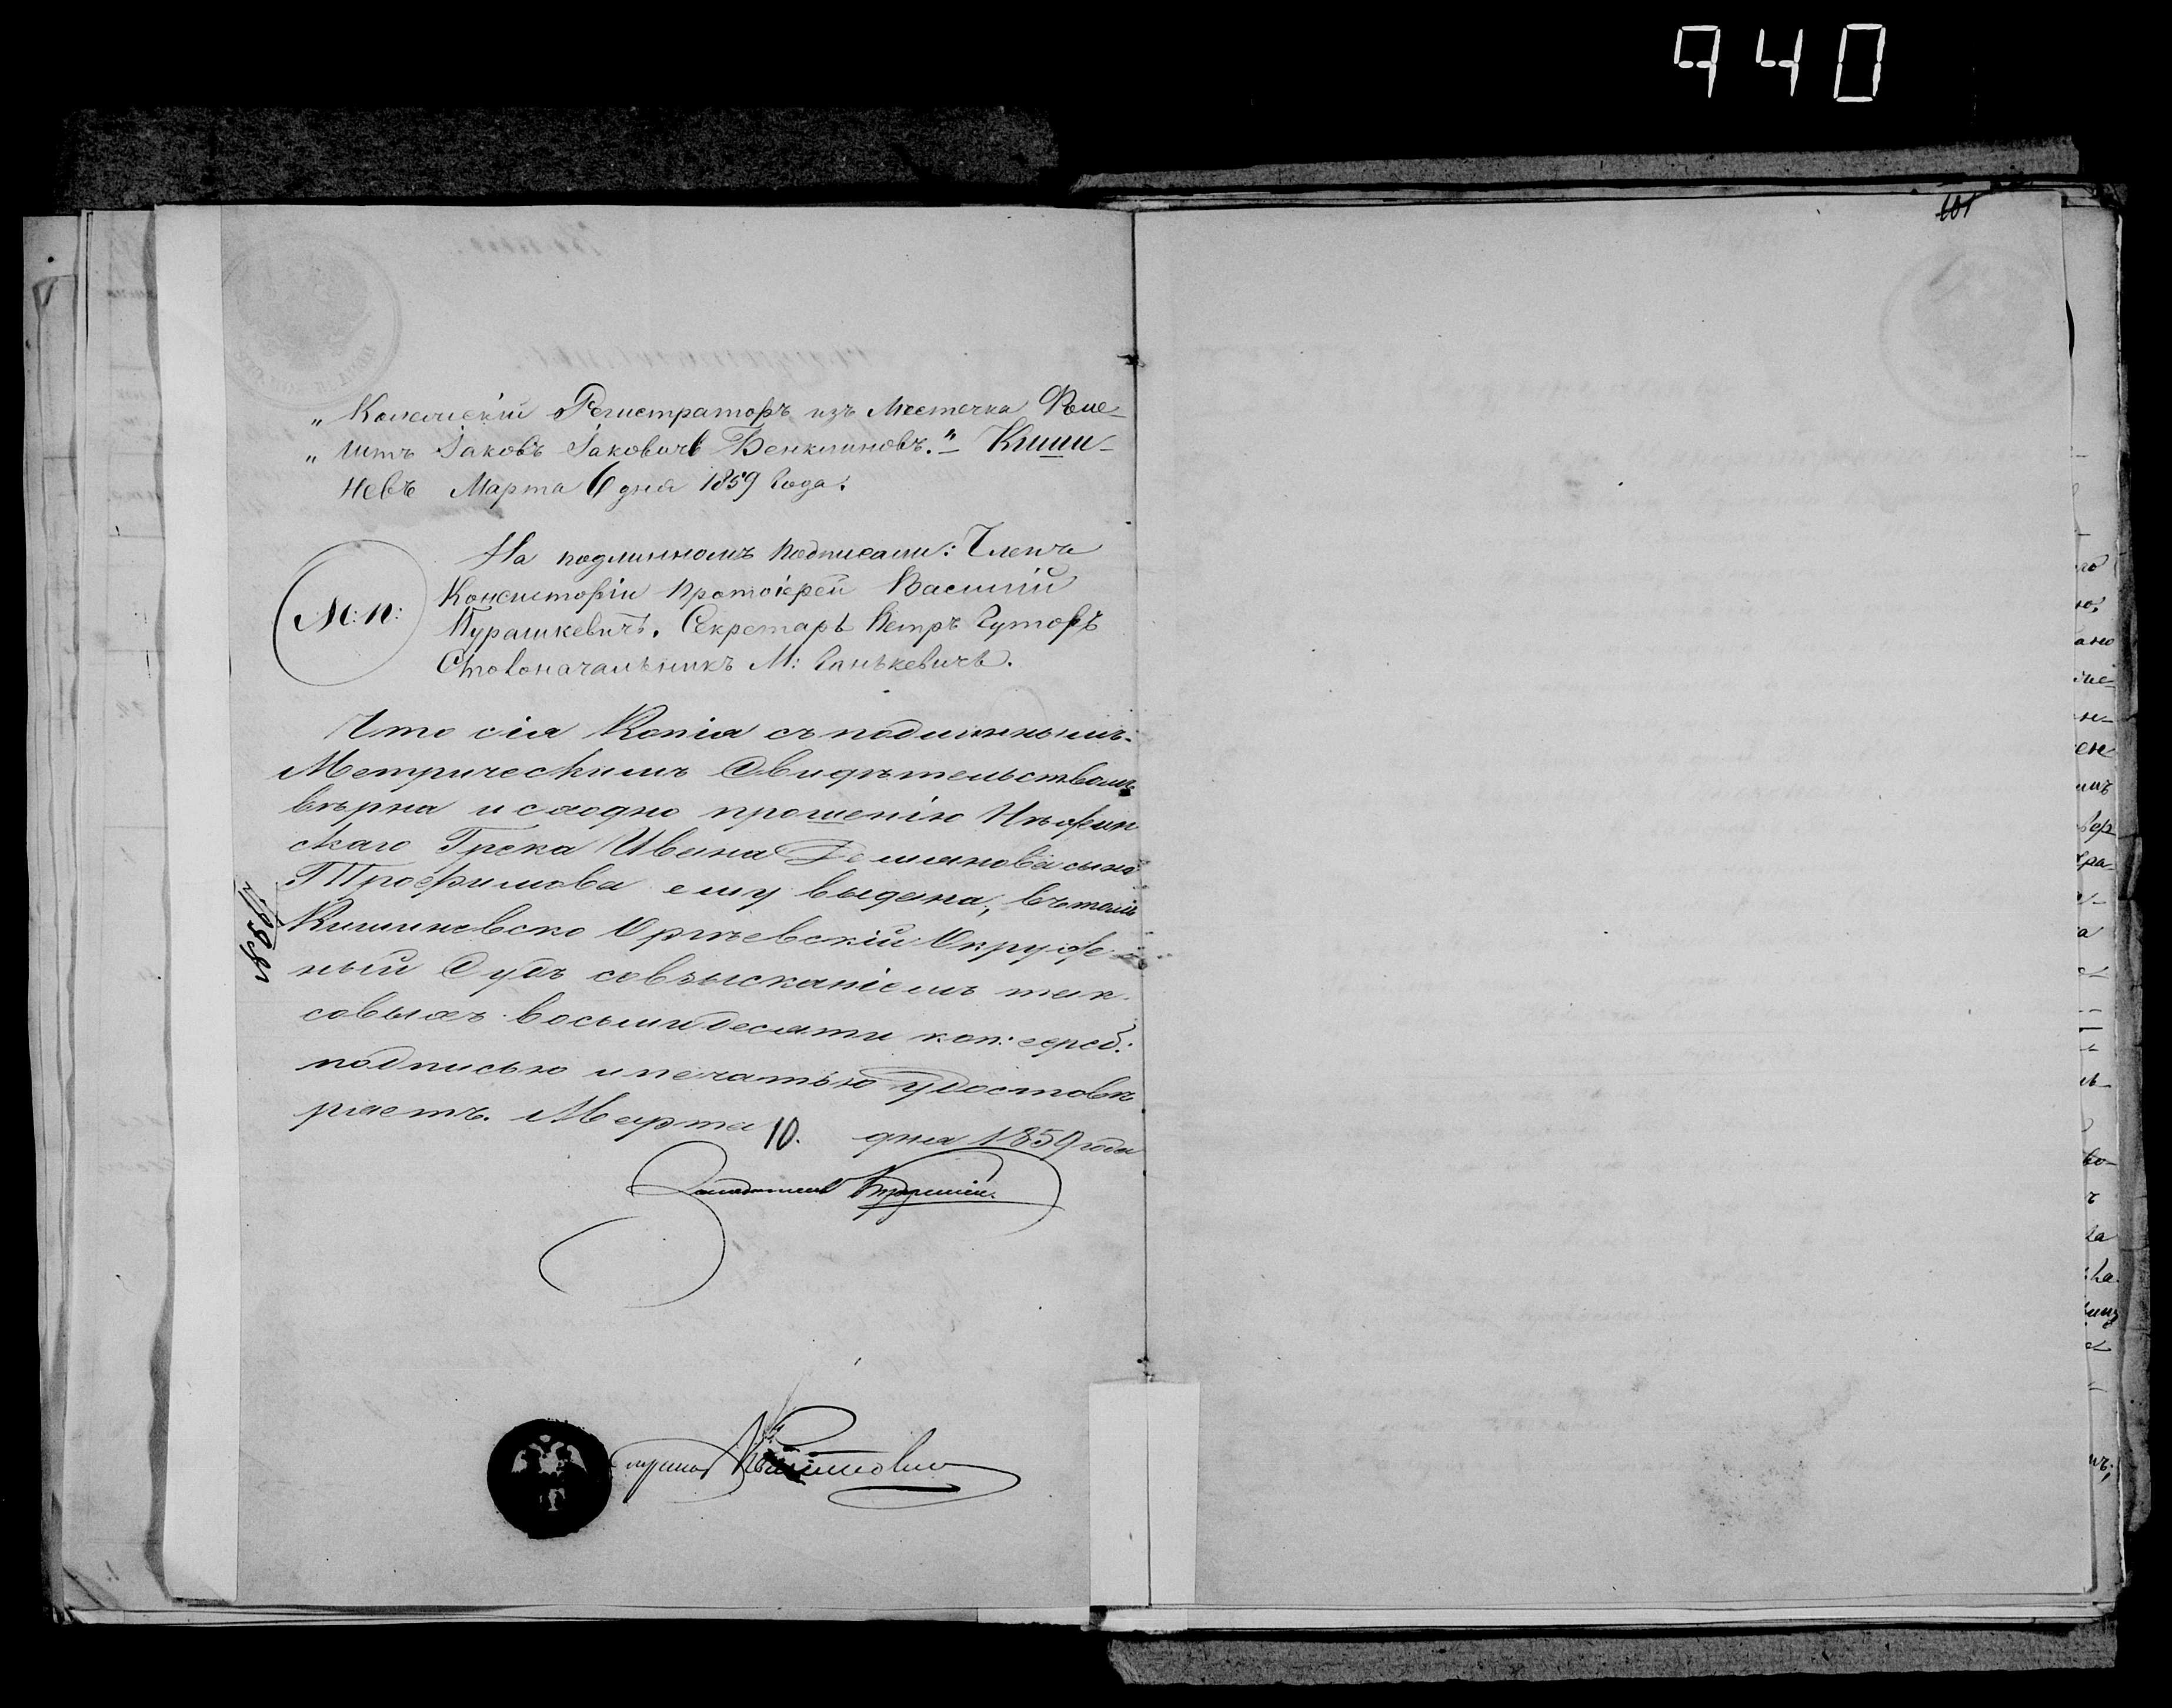 940
101
„ Колежскій Регистраторъ изъ Местечка Рѣше-
„ литъ Іаковъ Іаковичъ Бенклиновъ.“– Киши-
невъ Марта 6 дня 1859 года.
На подлинномъ подписали: Членъ
Консисторіи Протоіерей Василій
Пурашкевичъ. Секретарь Петръ Гуторъ
Столоначальникъ М: Ганькевичъ.
М: П:
Что сія Копія съ подлиннымъ
Метрическимъ Свидѣтельствомъ
вѣрна и сходно прошенію Нѣжин
скаго Грека Ивана Демианова сына
Трофимова ему выдана, въ томъ
Кишиневско Оргѣевскій Окруж-
ный Судъ со взысканіемъ так
совыхъ восьмидесяти коп: сереб:
подписью и печатью удостовѣ
ряетъ. Марта 10. дня 1859 года